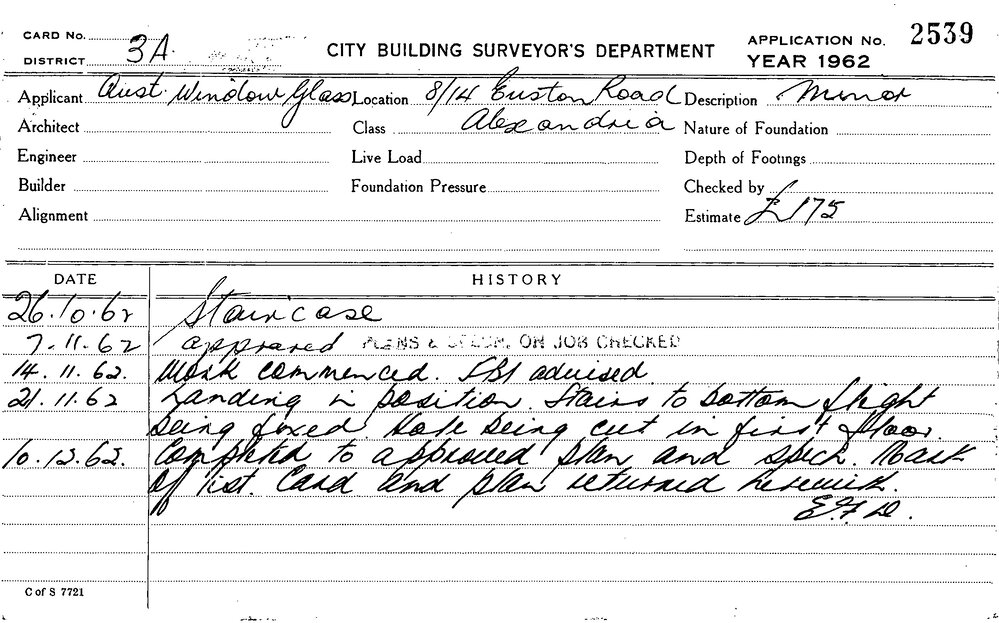 CARD No.
DISTRICT 3A
CITY BUILDING SURVEYOR'S DEPARTMENT
APPLICATION No. 2539
YEAR 1962
Applicant Aust. Window Glass Location 8/14 Euston Road Description Minor
Architect Class Alexandria Nature of Foundation
Engineer Live Load Depth of Footings
Builder Foundation Pressure Checked by
Alignment Estimate £175
DATE HISTORY
26.10.62 Staircase
7.11.62 approved PLANS & ON JOB CHECKED
14.11.62. Work commenced. advised.
21.11.62 Landing in position. Stairs to bottom flight
being fixed. Hole being cut in first floor.
10.12.62. Completed to approved plan and specn. Mark
off list. Card and plan returned herewith.
E.F.D.
C of S 7721